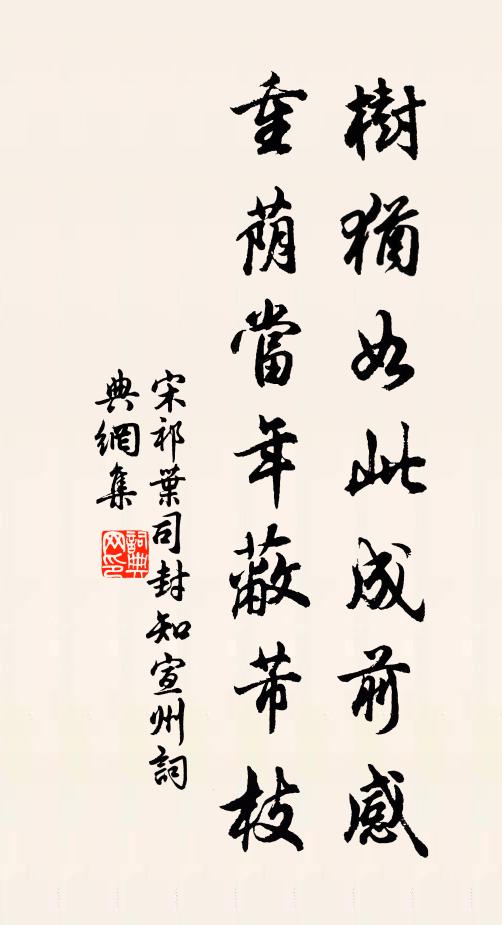 樹猶如此成前感
重荫當年蔽芾枝
宋祁葉司封知宣州詞
典網集
詞典
网印